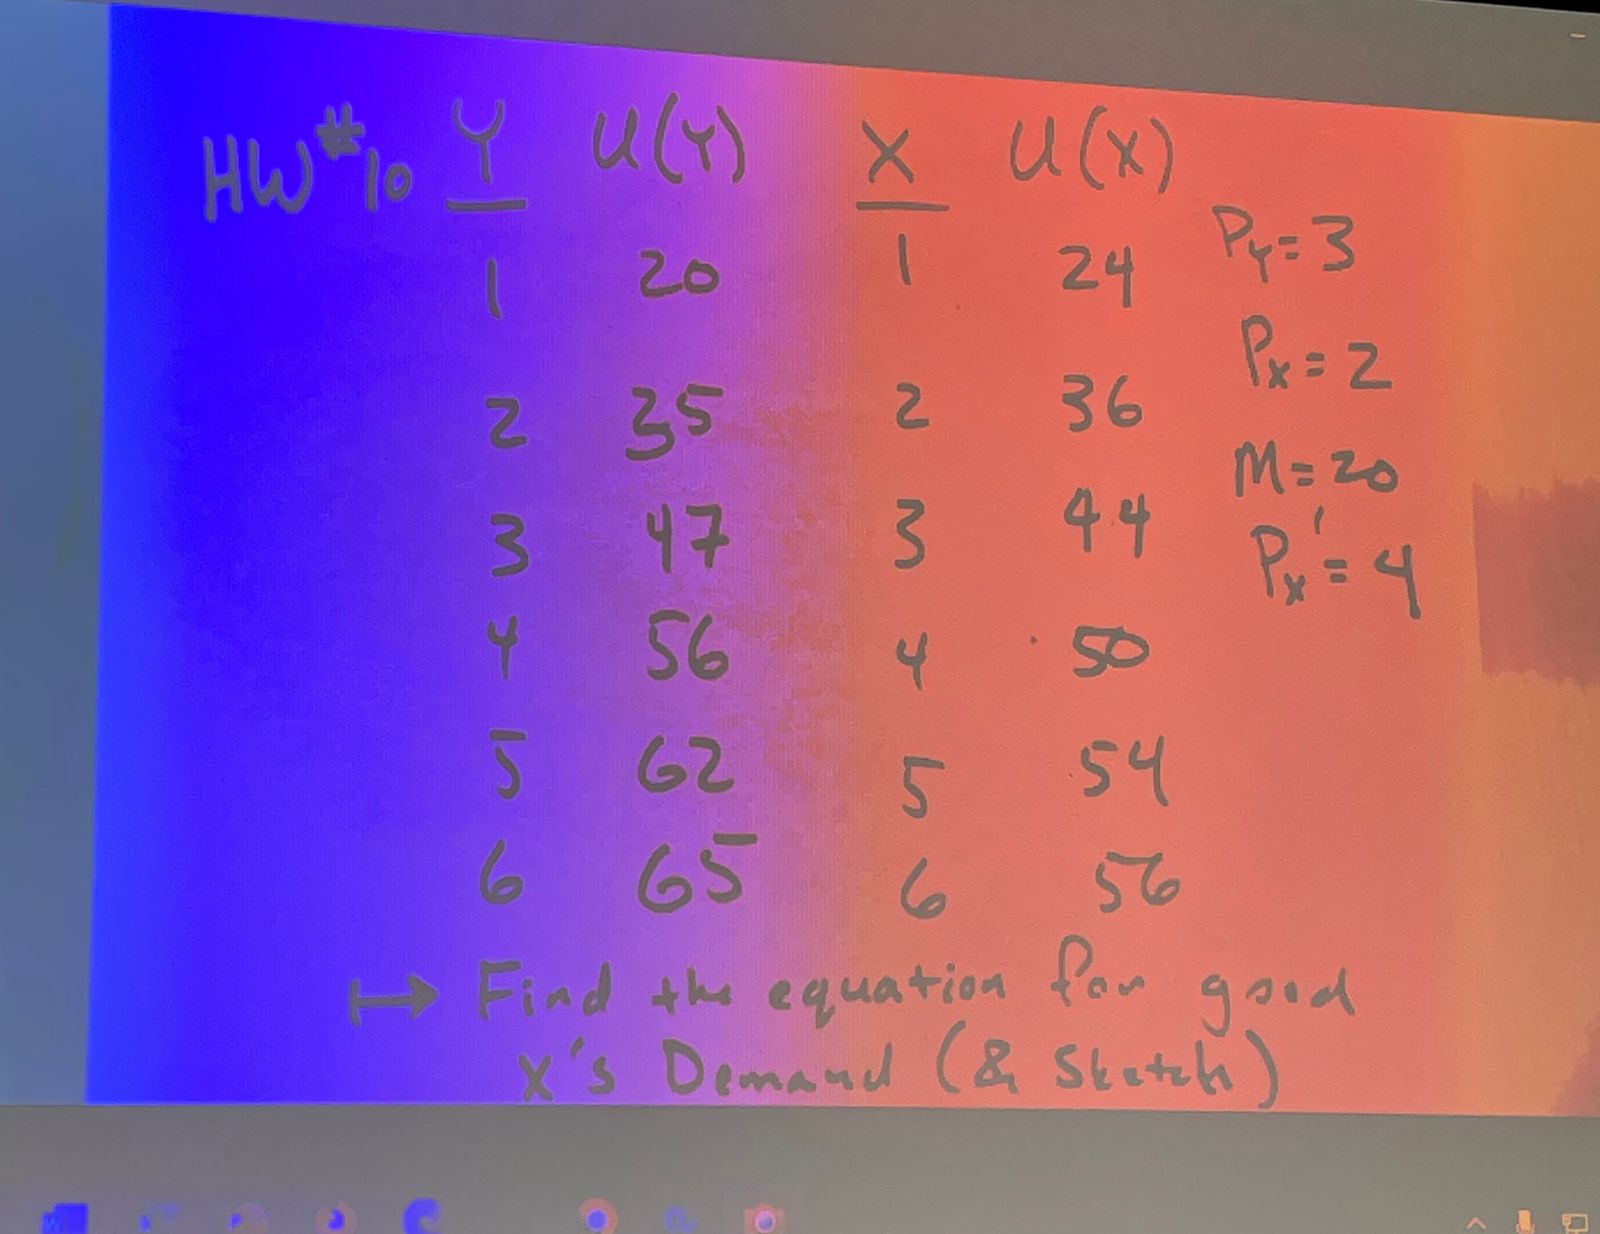 HW#10 Y U(Y) X U(X)
1 20 1 24 PY=3
2 35 2 36 Px=2
M=20
3 47 3 44 Px'=4
4 56 4 50
5 62 5 54
6 65 6 56
↦ Find the equation for good
X's Demand (& Sketch)